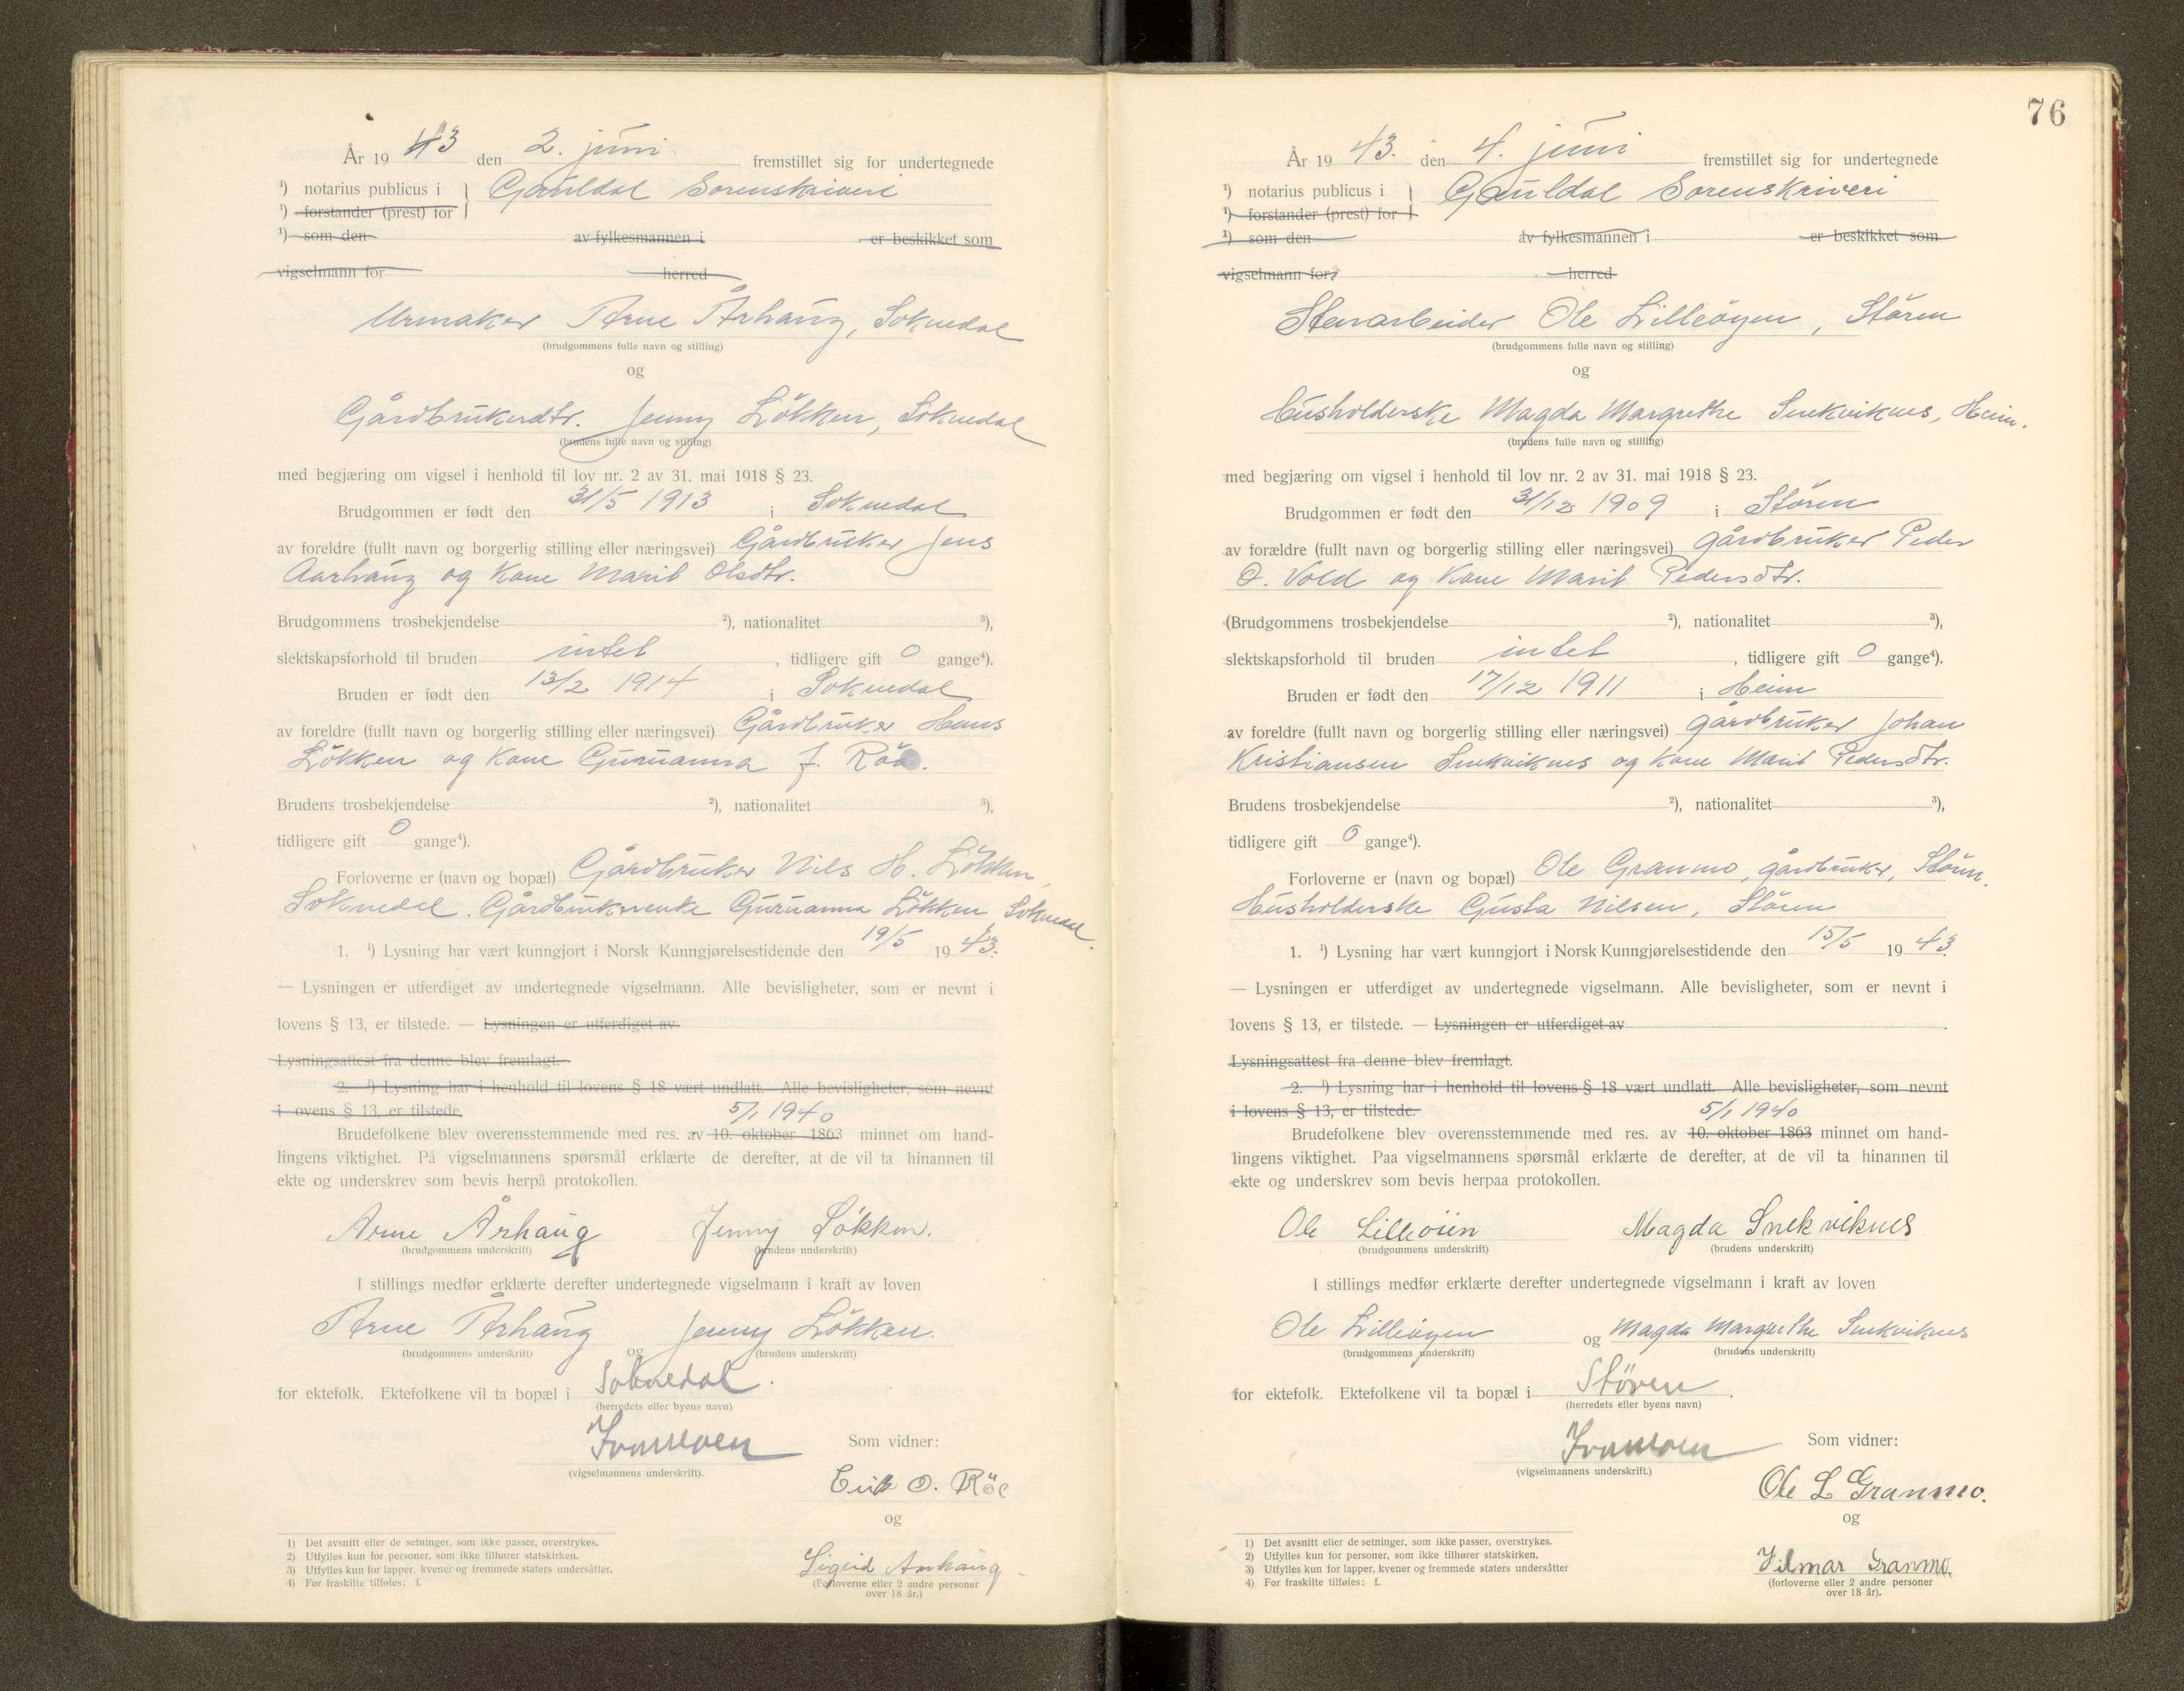 År 19 43 den 2. juni fremstillet sig for undertegnede
1) notarius publicus i } Gauldal Sorenskriveri
1) forstander (prest) for
1) som den av fylkesmannen i er beskikket som
vigselmann for herred
Urmaker Arne Århaug, Soknedal
(brudgommens fulle navn og stilling)
og
Gårdbrukerdtr. Jenny Løkken, Soknedal
(brudens fulle navn og stilling)
med begjæring om vigsel i henhold til lov nr. 2 av 31. mai 1918 § 23.
Brudgommen er født den 31/5 1913 i Soknedal
av foreldre (fullt navn og borgerlig stilling eller næringsvei) Gårdbruker Jens
Aarhaug og Kone Marit Olsdtr.
Brudgommens trosbekjendelse 2), nationalitet 3),
slektskapsforhold til bruden intet, tidligere gift 0 gange4).
Bruden er født den 13/2 1914 i Soknedal
av foreldre (fullt navn og borgerlig stilling eller næringsvei) Gårdbruker Hans
Løkken og Kone Guruanna f.
Brudens trosbekjendelse 2), nationalitet 3),
tidligere gift 0 gange4).
Forloverne er (navn og bopæl) Gårdbruker Nils H. Løkken,
Soknedal. Gårdbrukerenke Guruanna Løkken, Soknedal.
1. 1) Lysning har vært kunngjort i Norsk Kunngjørelsestidende den 19/5 19 43.
— Lysningen er utferdiget av undertegnede vigselmann. Alle bevisligheter, som er nevnt i
lovens § 13, er tilstede. — Lysningen er utferdiget av
Lysningsattest fra denne blev fremlagt.
2. 1) Lysning har i henhold til lovens § 18 vært undlatt. Alle bevisligheter, som nevnt
i ovens § 13, er tilstede.
5/1 1940
Brudefolkene blev overensstemmende med res. av 10. oktober 1863 minnet om hand-
lingens viktighet. På vigselmannens spørsmål erklærte de derefter, at de vil ta hinannen til
ekte og underskrev som bevis herpå protokollen.
Arne Århaug Jenny Løkken.
(brudgommens underskrift) (brudens underskrift)
I stillings medfør erklærte derefter undertegnede vigselmann i kraft av loven
Arne Århaug og Jenny Løkken.
(brudgommens underskrift) (brudens underskrift)
for ektefolk. Ektefolkene vil ta bopæl i Soknedal.
(herredets eller byens navn)
(vigselmannens underskrift).
Som vidner:
Erik O.
og
Sigrid Aarhaug
(Forloverne eller 2 andre personer
over 18 år.)
1) Det avsnitt eller de setninger, som ikke passer, overstrykes.
2) Utfylles kun for personer, som ikke tilhører statskirken.
3) Utfylles kun for lapper, kvener og fremmede staters undersåtter.
4) For fraskilte tilføies: f.
76
År 19 43. den 4. juni fremstillet sig for undertegnede
1) notarius publicus i } Gauldal Sorenskriveri
1) forstander (prest) for
1) som den av fylkesmannen i er beskikket som
vigselmann for herred
Stenarbeider Ole Lilleøyen, Støren
(brudgommens fulle navn og stilling)
og
Husholderske Magda Margrethe Snekviknes, Heim.
(brudens fulle navn og stilling)
med begjæring om vigsel i henhold til lov nr. 2 av 31. mai 1918 § 23.
Brudgommen er født den 31/12 1909 i Støren
av forældre (fullt navn og borgerlig stilling eller næringsvei) gårdbruker Peder
O. Vold og Kone Marit Pedersdtr.
(Brudgommens trosbekjendelse 2), nationalitet 3),
slektskapsforhold til bruden intet, tidligere gift 0 gange4).
Bruden er født den 17/12 1911 i Heim
av foreldre (fullt navn og borgerlig stilling eller næringsvei) gårdbruker Johan
Kristiansen Snekviknes og Kone Marit Pedersdtr.
Brudens trosbekjendelse 2), nationalitet 3),
tidligere gift 0 gange4).
Forloverne er (navn og bopæl) Ole Granmo, gårdbruker, Støren.
Husholderske Gusta Nilsen, Støren
1. 1) Lysning har vært kunngjort i Norsk Kunngjørelsestidende den 15/5 19 43.
— Lysningen er utferdiget av undertegnede vigselmann. Alle bevisligheter, som er nevnt i
lovens § 13, er tilstede. — Lysningen er utferdiget av .
Lysningsattest fra denne blev fremlagt.
2. 1) Lysning har i henhold til lovens § 18 vært undlatt. Alle bevisligheter, som nevnt
i lovens § 13, er tilstede.
5/1 1940
Brudefolkene blev overensstemmende med res. av 10. oktober 1863 minnet om hand-
lingens viktighet. Paa vigselmannens spørsmål erklærte de derefter, at de vil ta hinannen til
ekte og underskrev som bevis herpaa protokollen.
Ole Lilleøien Magda Snekviknes
(brudgommens underskrift) (brudens underskrift)
I stillings medfør erklærte derefter undertegnede vigselmann i kraft av loven
Ole Lilleøyen og Magda Margrethe Snekviknes
(brudgommens underskrift) (brudens underskrift)
for ektefolk. Ektefolkene vil ta bopæl i Støren.
(herredets eller byens navn)
(vigselmannens underskrift.)
Som vidner:
Ole L Granmo.
og
Hilmar Granmo.
(forloverne eller 2 andre personer
over 18 år).
1) Det avsnitt eller de setninger, som ikke passer, overstrykes.
2) Utfylles kun for personer, som ikke tilhører statskirken.
3) Utfylles kun for lapper, kvener og fremmede staters undersåtter
4) For fraskilte tilføies: f.